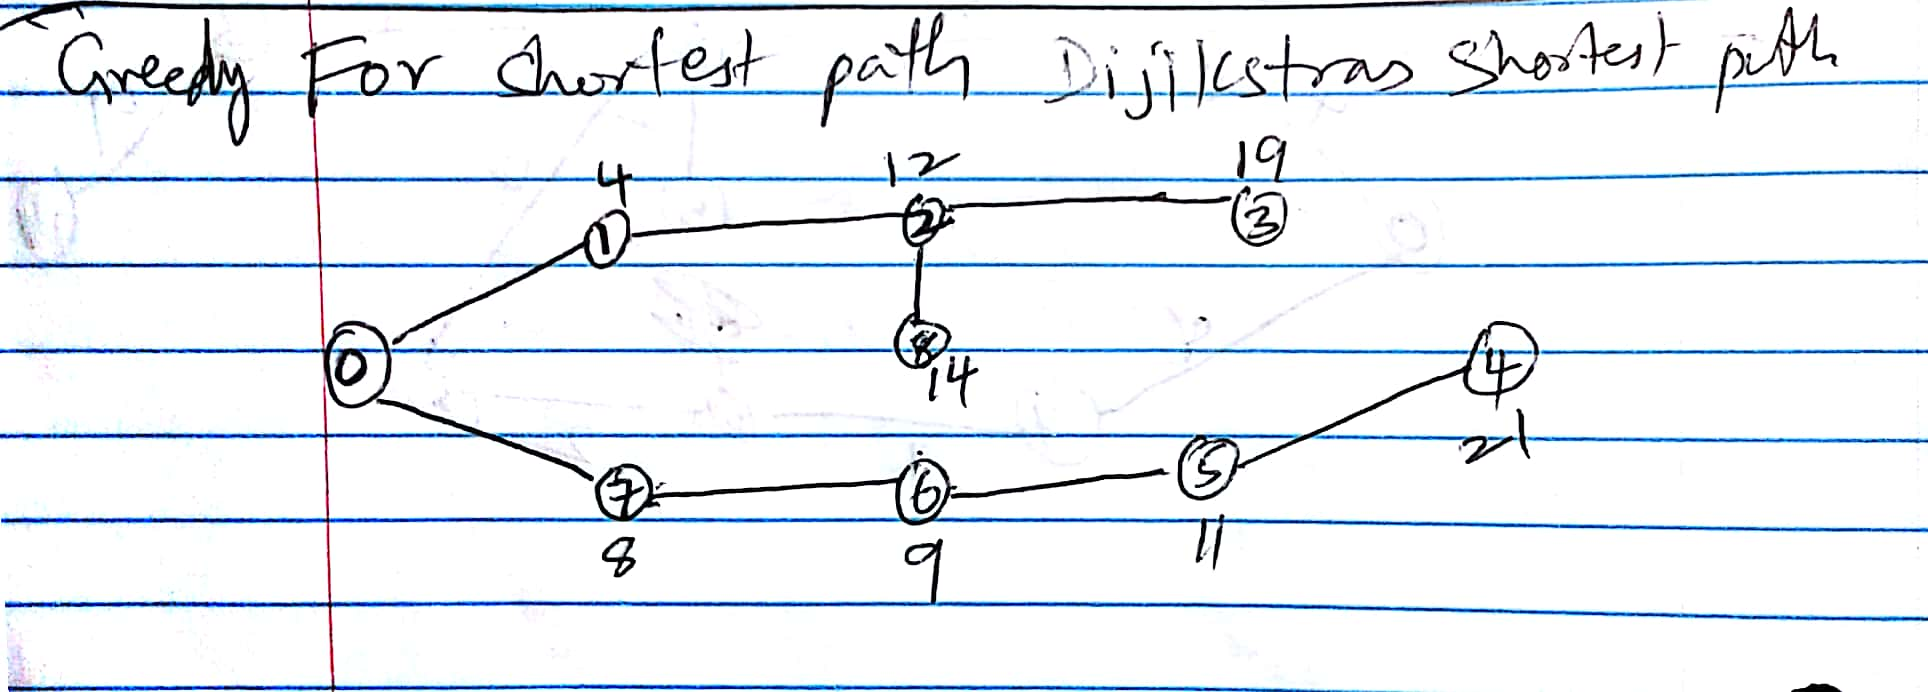 Greedy For Shortest path Dijikstras Shortest path
4 12 19
1 2 3
0 8 4
14
21
7 6 5
8 9 11